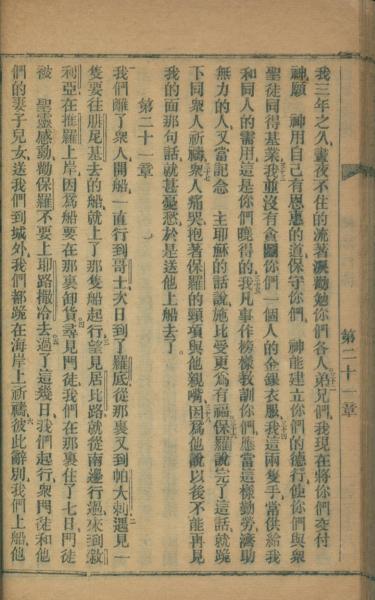 我三年之久晝夜不住的流著淚勸勉你們各人弟兄們我現在將你們交付
神願　神用自己有恩惠的道保守你們　神能建立你們的德行使你們與衆
聖徒同得基業我並沒有貪圖你們一個人的金銀衣服我這兩隻手當供給我
和同人的需用這是你們曉得的我凡事作榜樣教訓你們應當這樣勤勞濟助
無力的人又當記念　主耶穌的話說施比受更爲有福保羅說完了這話就跪
下同衆人祈禱衆人痛哭抱著保羅的頸項與他親嘴因爲他說以後不能再見
我的面那句話就甚憂愁於是送他上船去了
第二十一章
我們離了衆人開船一直行到哥士次日到了羅底從那裏又到帕大剌遇見一
隻要往腓尼基去的船就上了那隻船起行望見居比路就從南邊行過來到敘
利亞在推羅上岸因爲船要在那裏卸貨尋見門徒我們在那裏住了七日門徒
被　聖靈感動勸保羅不要上耶路撒冷去過了這幾日我們起行衆門徒和他
們的妻子兒女送我們到城外我們都跪在海岸上祈禱彼此辭別我們上船他
第二十一章